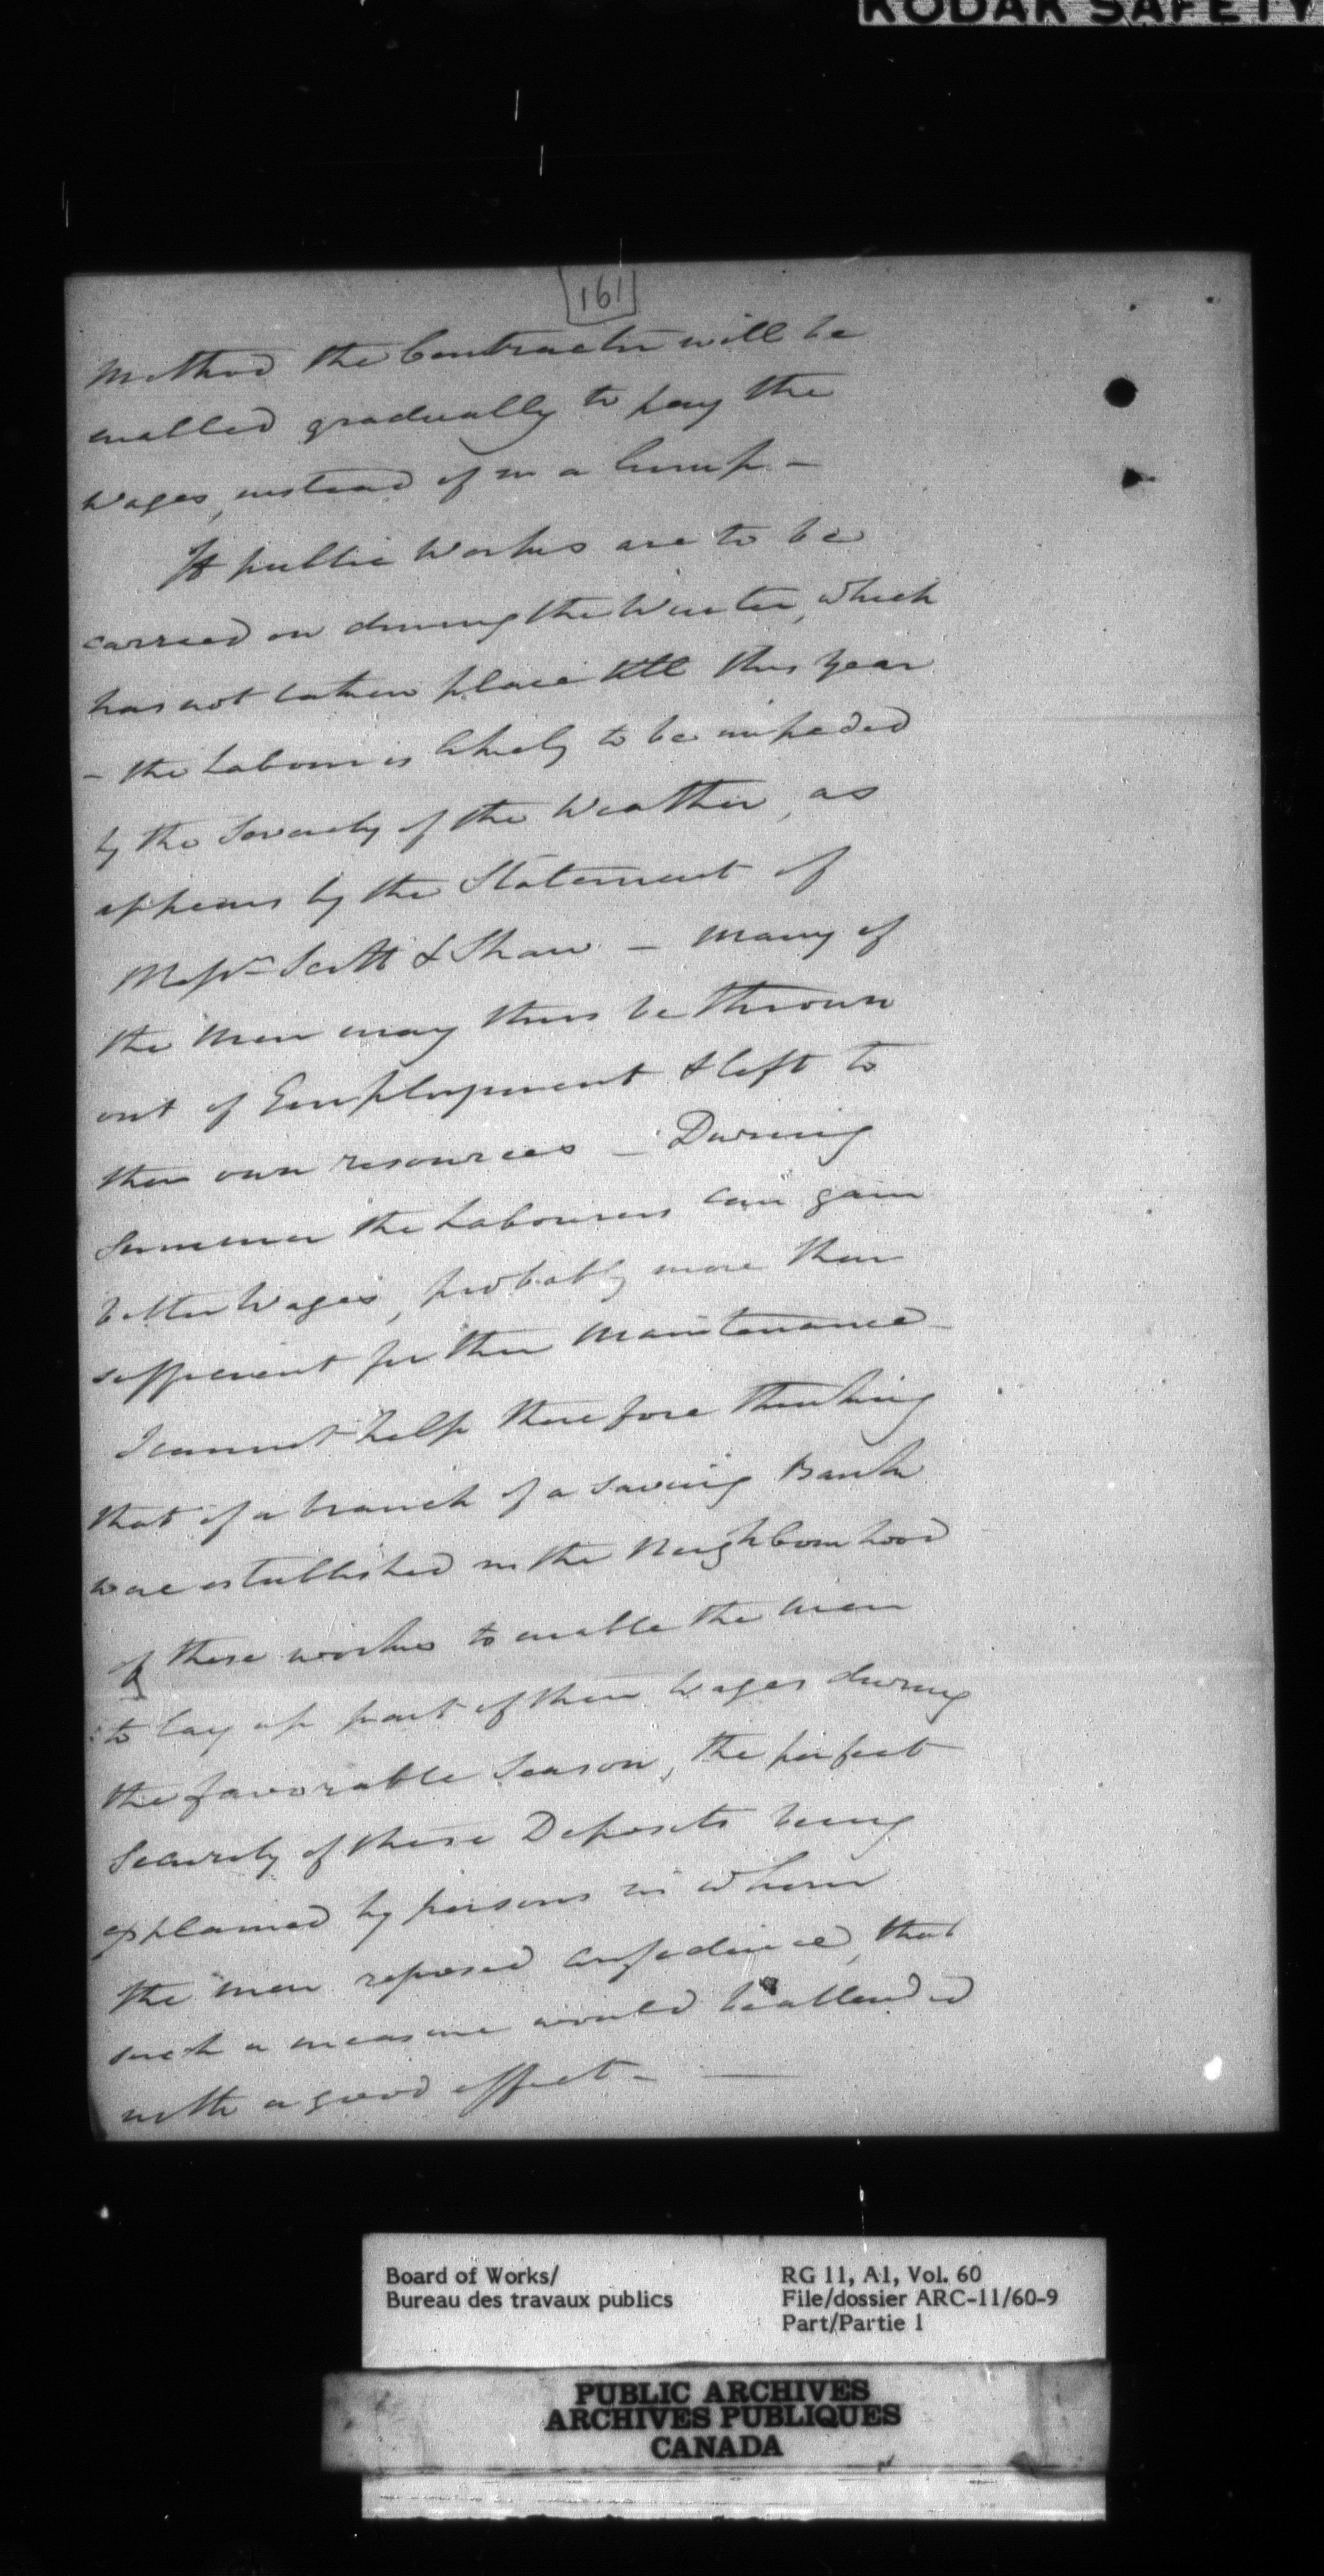 KODAK SAFETY
161
Method the Contractor will be
enabled gradually to pay the
Wages, instead of in a lump. -
If public Works are to be
carried on during the Winter, which
has not taken place till this year
- the Labour is likely to be impeded
by the Severity of the Weather, as
appears by the Statement of
Messrs Scott & Shaw - Many of
the Men may thus be thrown
out of Employment & left to
their own resources - During
Summer the Labourers can gain
better Wages, probably more than
sufficient for their Maintenance -
I cannot help therefore thinking
that if a branch of a Saving Bank
were established in the Neighbourhood
of these works to enable the men
to lay up part of their Wages during
the favorable Season, the perfect
Security of these Deposits being
explained by persons in whom
the men reposed confidence, that
such a measure would be attended
with a good effect -
Board of Works/
Bureau des travaux publics
RG 11, A1, Vol. 60
File/dossier ARC-11/60-9
Part/Partie 1
PUBLIC ARCHIVES
ARCHIVES PUBLIQUES
CANADA